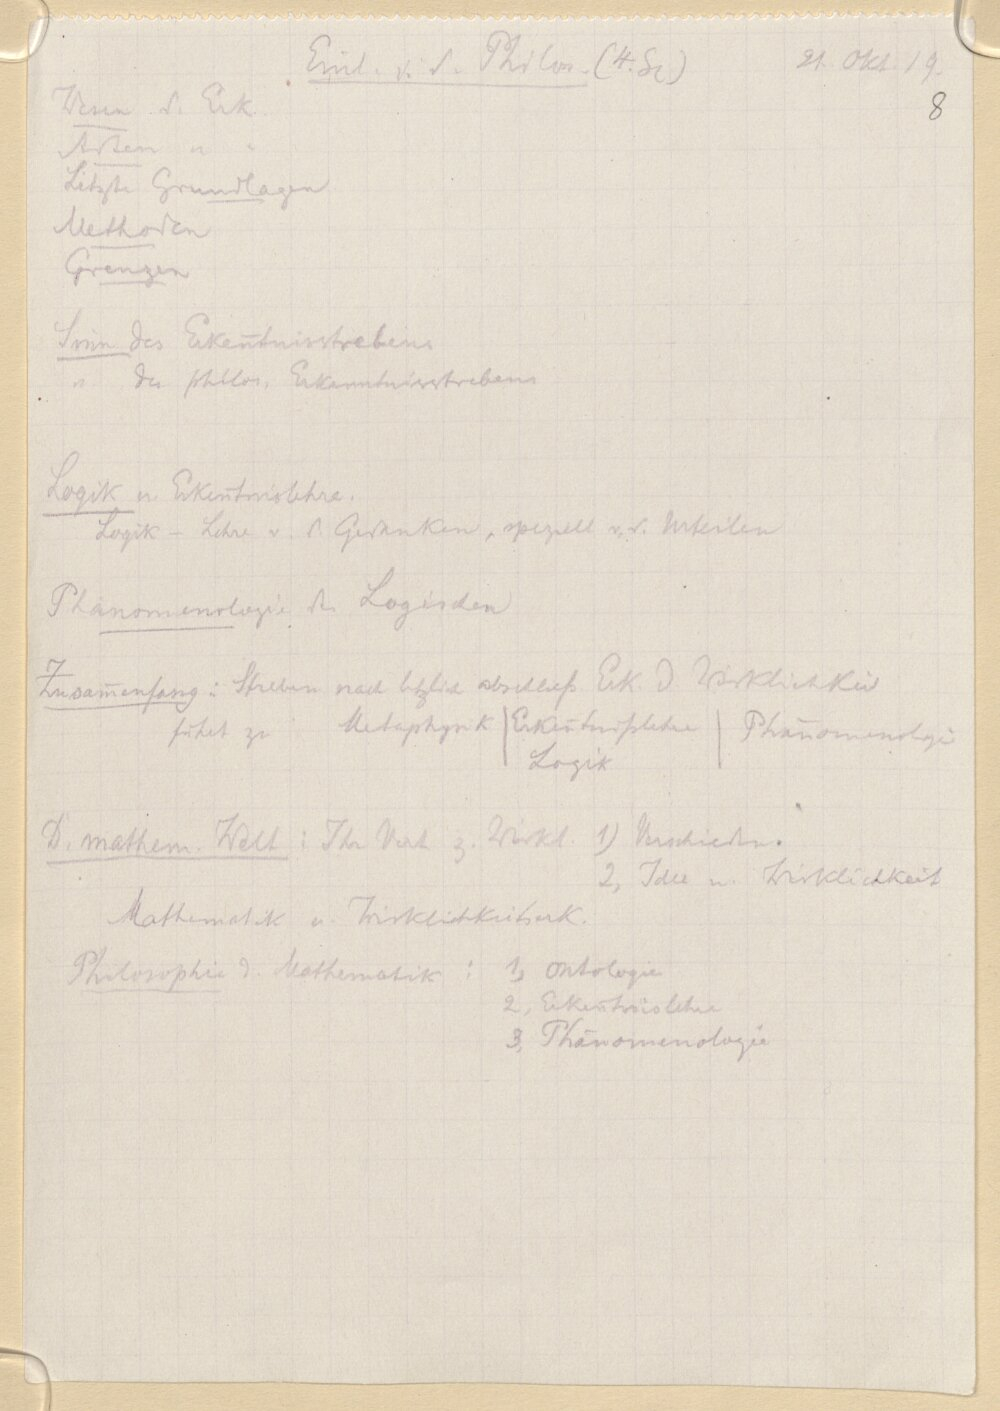 Einl. i. d. Philos. (4. St) 21. Okt. 19.
8
Wesen d. Erk.
Arten " "
Letzte Grundlagen
Methoden
Grenzen
Sinn des Erkenntnisstrebens
" des philos. Erkenntnisstrebens
Logik u. Erkenntnislehre.
Logik – Lehre v. d. Gedanken, speziell v. d. Urteilen
Phänomenologie des Logischen
Zusammenfang: Streben nach letztlich abschließ Erk d Wirklichkeit
führt zu Metaphysik | Erkenntnißlehre | Phänomenologie
Logik
D. mathem. Welt: Ihr Verh z. Wirkl. 1) Verschieden.
2, Idee u. Wirklichkeit
Mathematik u. Wirklichkeitserk.
Philosophie d. Mathematik: 1, Ontologie
2, Erkenntnislehre
3, Phänomenologie